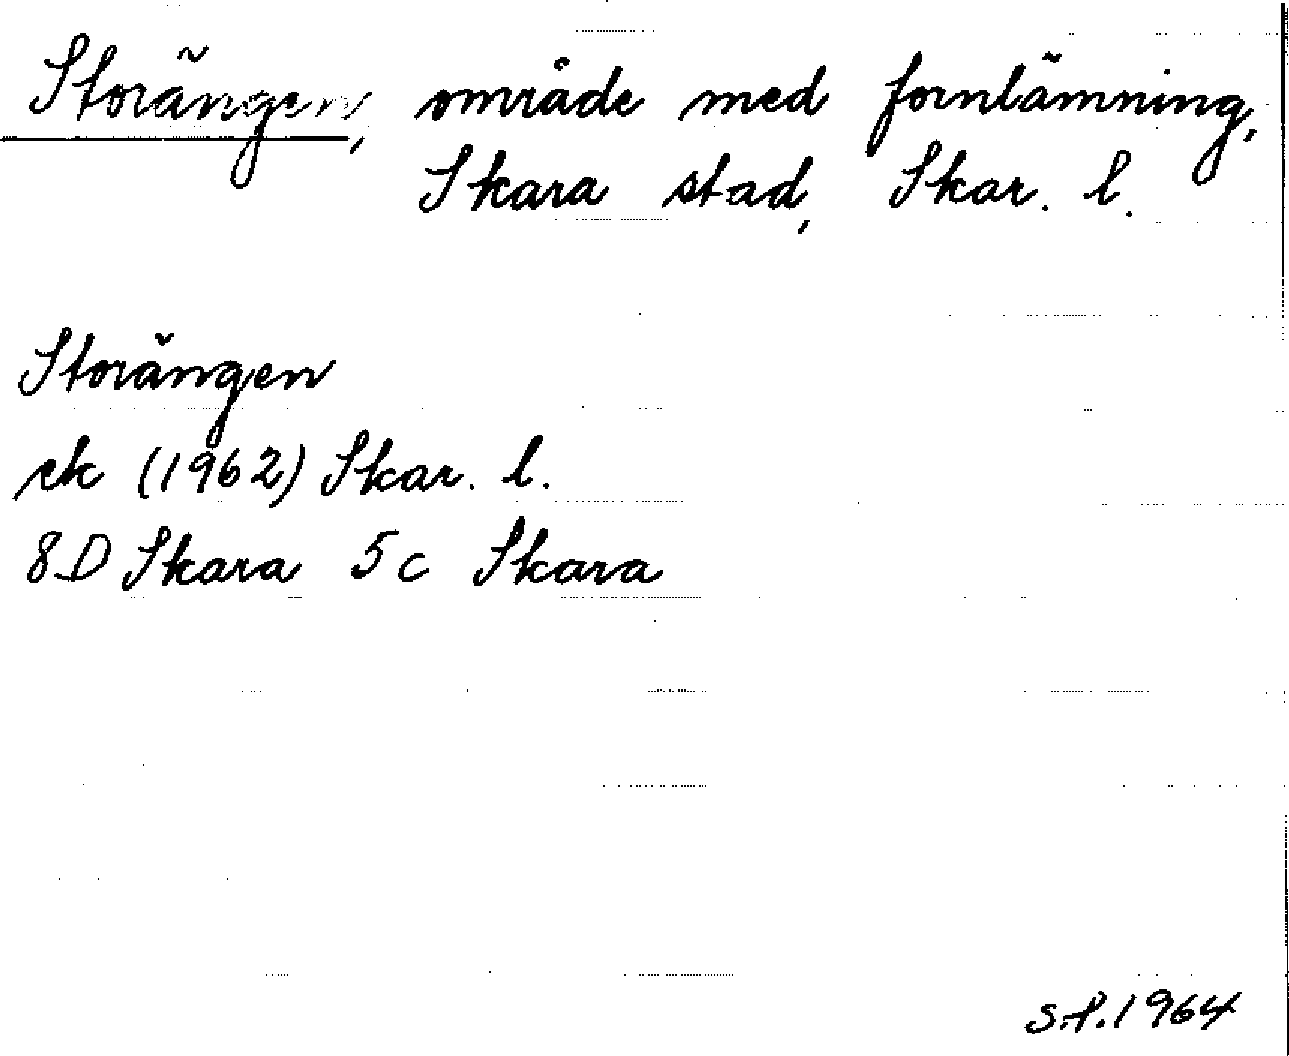 Storängen, område med fornlämning,
Skara stad, Skar. l.
Storängen
ek (1962) Skar. l.
8D Skara 5c Skara
1964